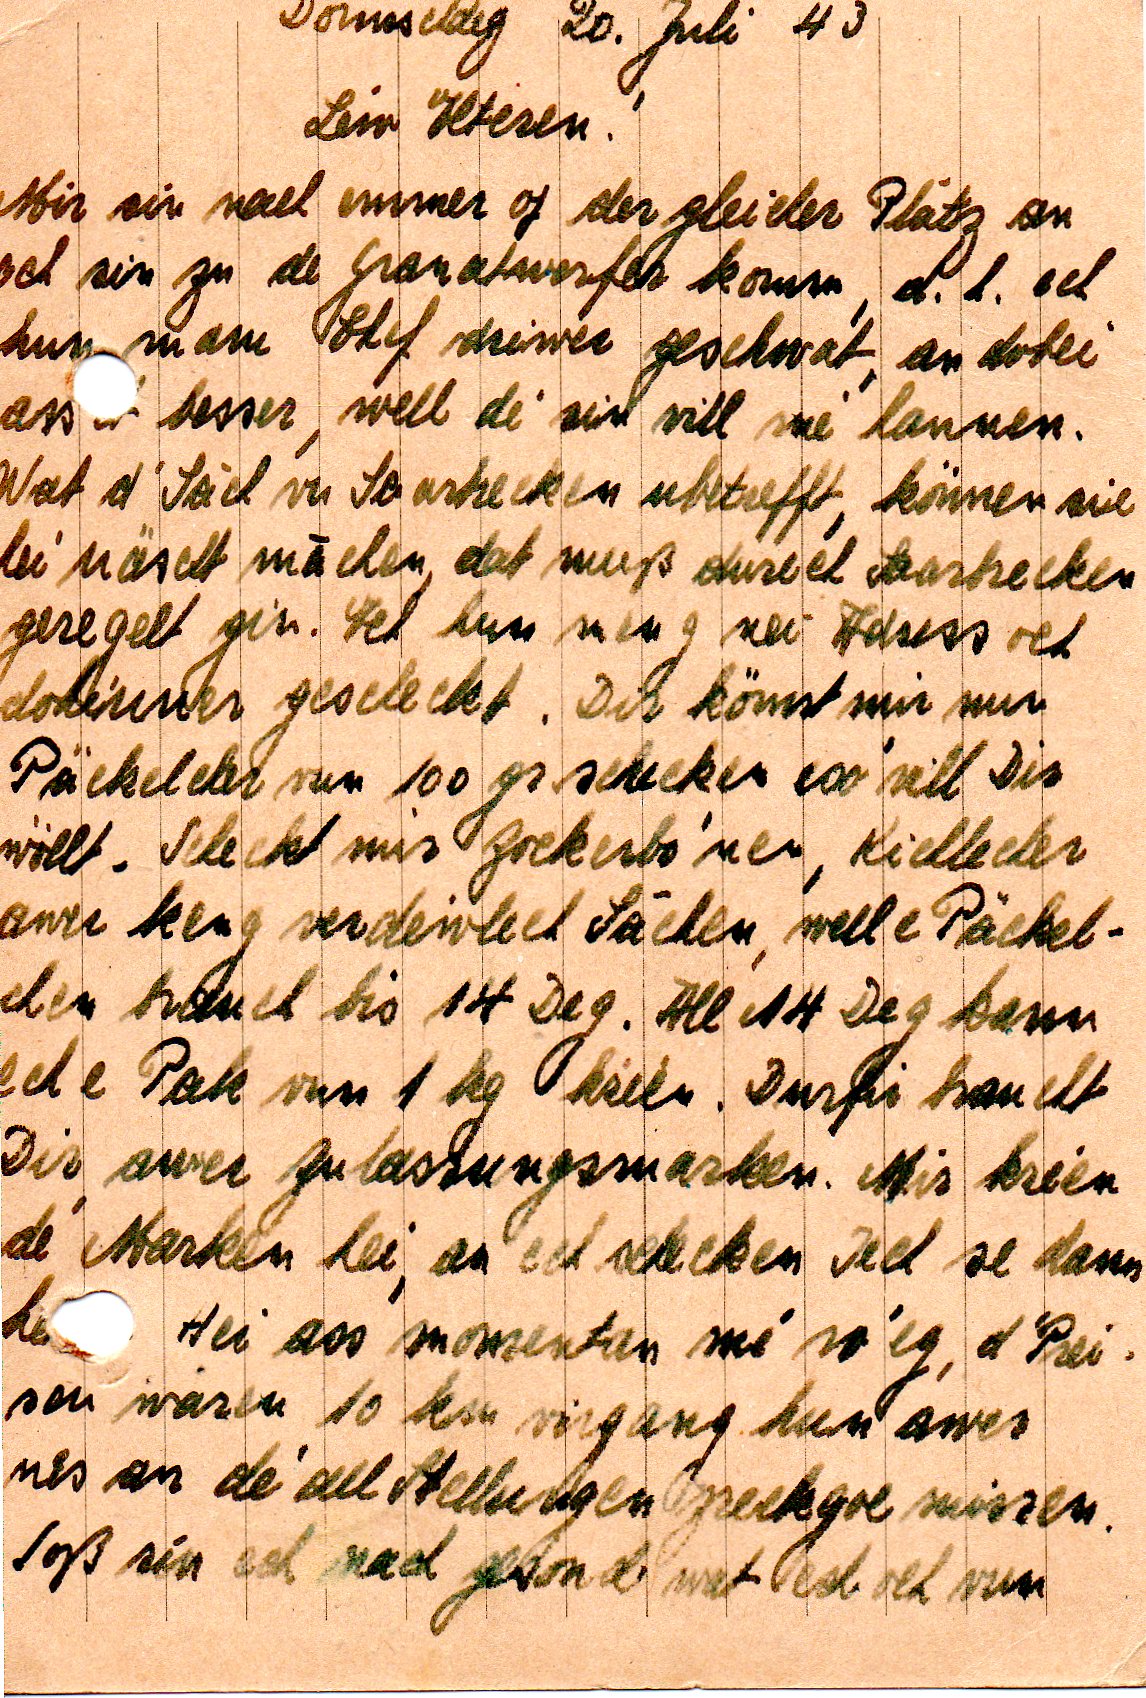 Donneschdeg 20. Juli 43
Léiw Elteren!
Mir sin nach ëmmer op der gleicher Plätz an
ech sin zu de Granatwerfer komm, d. h. ech
hun mam Chef driwer geschwat, an dobei
ass et besser, well dé sin vill mé hannen.
Wat d'Säch vu Saarbrecken ubetrefft, können sie
hei näscht mächen, dat muß durech Saarbrecken
geregelt gin. Ech hun meng nei Adress och
dohinner gescheckt. Dir könnt mir nun
Päckelcher vun 100 gr schecken esó vill Dir
wöllt. Scheckt mir Zockerbó'nen, Kichlecher
awer keng verdeiwlech Sächen, well e Päckel-
chen brauch bis 14 Deg. All 14 Deg kann
ech e Pak vun 1 kg kréien. Durfir braucht
Dir awer Zulassungsmarken. Mir kréien
dé Marken hei, an ech schecken Iech se dann
Hei ass momentan mé ró'eg, d'Prei-
sen wären 10 km virgang hun awer
nes an dé all Stellungen zreckgoe missen.
Soß sin ech nach gesond wat ech och vun